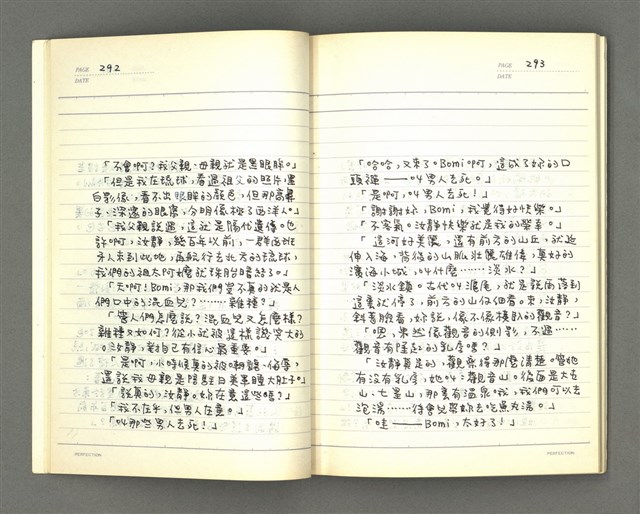 PAGE 292
DATE
「不會啊?我父親、母親就是黑眼眸。」
「但是我在琉球,看過祖父的照片,黑
白影像,看不出眼眸的顏色,但那高鼻
子、深邃的眼窩,分明像極了西洋人。」
「我父親說過,這就是隔代遺傳。也
許啊,汝靜,幾百年以前,一群西班
牙人來到此地,再航行去北方的琉球,
我們的祖太阿嬤就珠胎暗結了。」
「天啊!Bomi,那我們豈不真的就是人
們口中的混血兒?………雜種?」
「管人們怎麼說?混血兒又怎麼樣?
雜種又如何?從小就被這樣譏笑大的
。汝靜,咱自己有信心最重要。」
「是啊,小時候真的被嘲謔、侮辱,
還說我母親是陪駐日美軍睡大肚子。」
「說真的,汝靜。妳在意這些嗎?」
「我不在乎,但男人在意。」
「叫那些男人去死!」
PERFECTION
PAGE 293
DATE
「哈哈,又來了。Bomi啊,這成了妳的口
頭禪——叫男人去死。」
「是啊,叫男人去死!」
「謝謝妳,Bomi,我覺得好快樂。」
「不客氣。汝靜快樂就是我的榮幸。」
「這河好美麗,還有前方的山丘,就延
伸入海,背後的山脈壯麗雄偉,真好的
濱海小城,叫什麼……淡水?」
「淡水鎮。古代叫滬尾,就是說雨落到
這裏就停了,前方的山仔細看。來,汝靜,
斜著臉看,妳說,像不像橫臥的觀音?」
「嗯,果然像觀音的側影,不過……
觀音有隆起的乳房嗎?」
「汝靜真是的,觀察得那麼清楚。管她
有沒有乳房,她叫:觀音山。後面是大屯
山、七星山,那裏有溫泉哦,我們可以去
泡湯……待會兒帶妳去吃魚丸湯。」
「哇——Bomi,太好了!」
PERFECTION